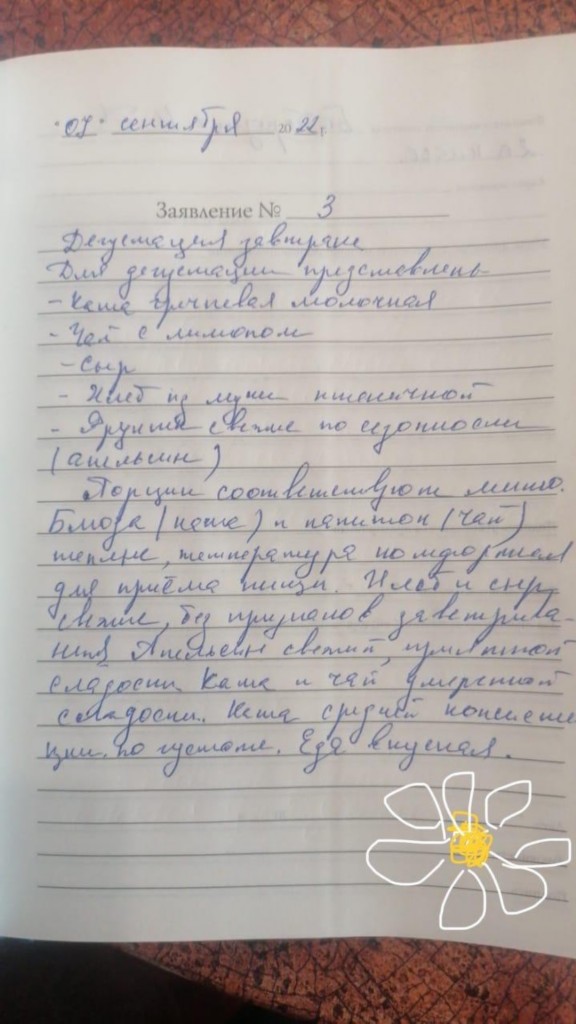 "07" сентября 2022 г.
Заявление № 3
Дегустация завтрака
Для дегустации представлены
- Каша гречневая молочная
- Чай с лимоном
- Сыр
- Хлеб из муки пшеничной
- Фрукты свежие по сезонности
(апельсин)
Порции соответствуют меню.
Блюда (каша) и напиток (чай)
теплые, температура комфортная
для приёма пищи. Хлеб и сыр
свежие, без признаков заветрива-
ния. Апельсин свежий, приятной
сладости. Каша и чай умеренной
сладости. Каша средней консистен
ции по густоте. Еда вкусная.